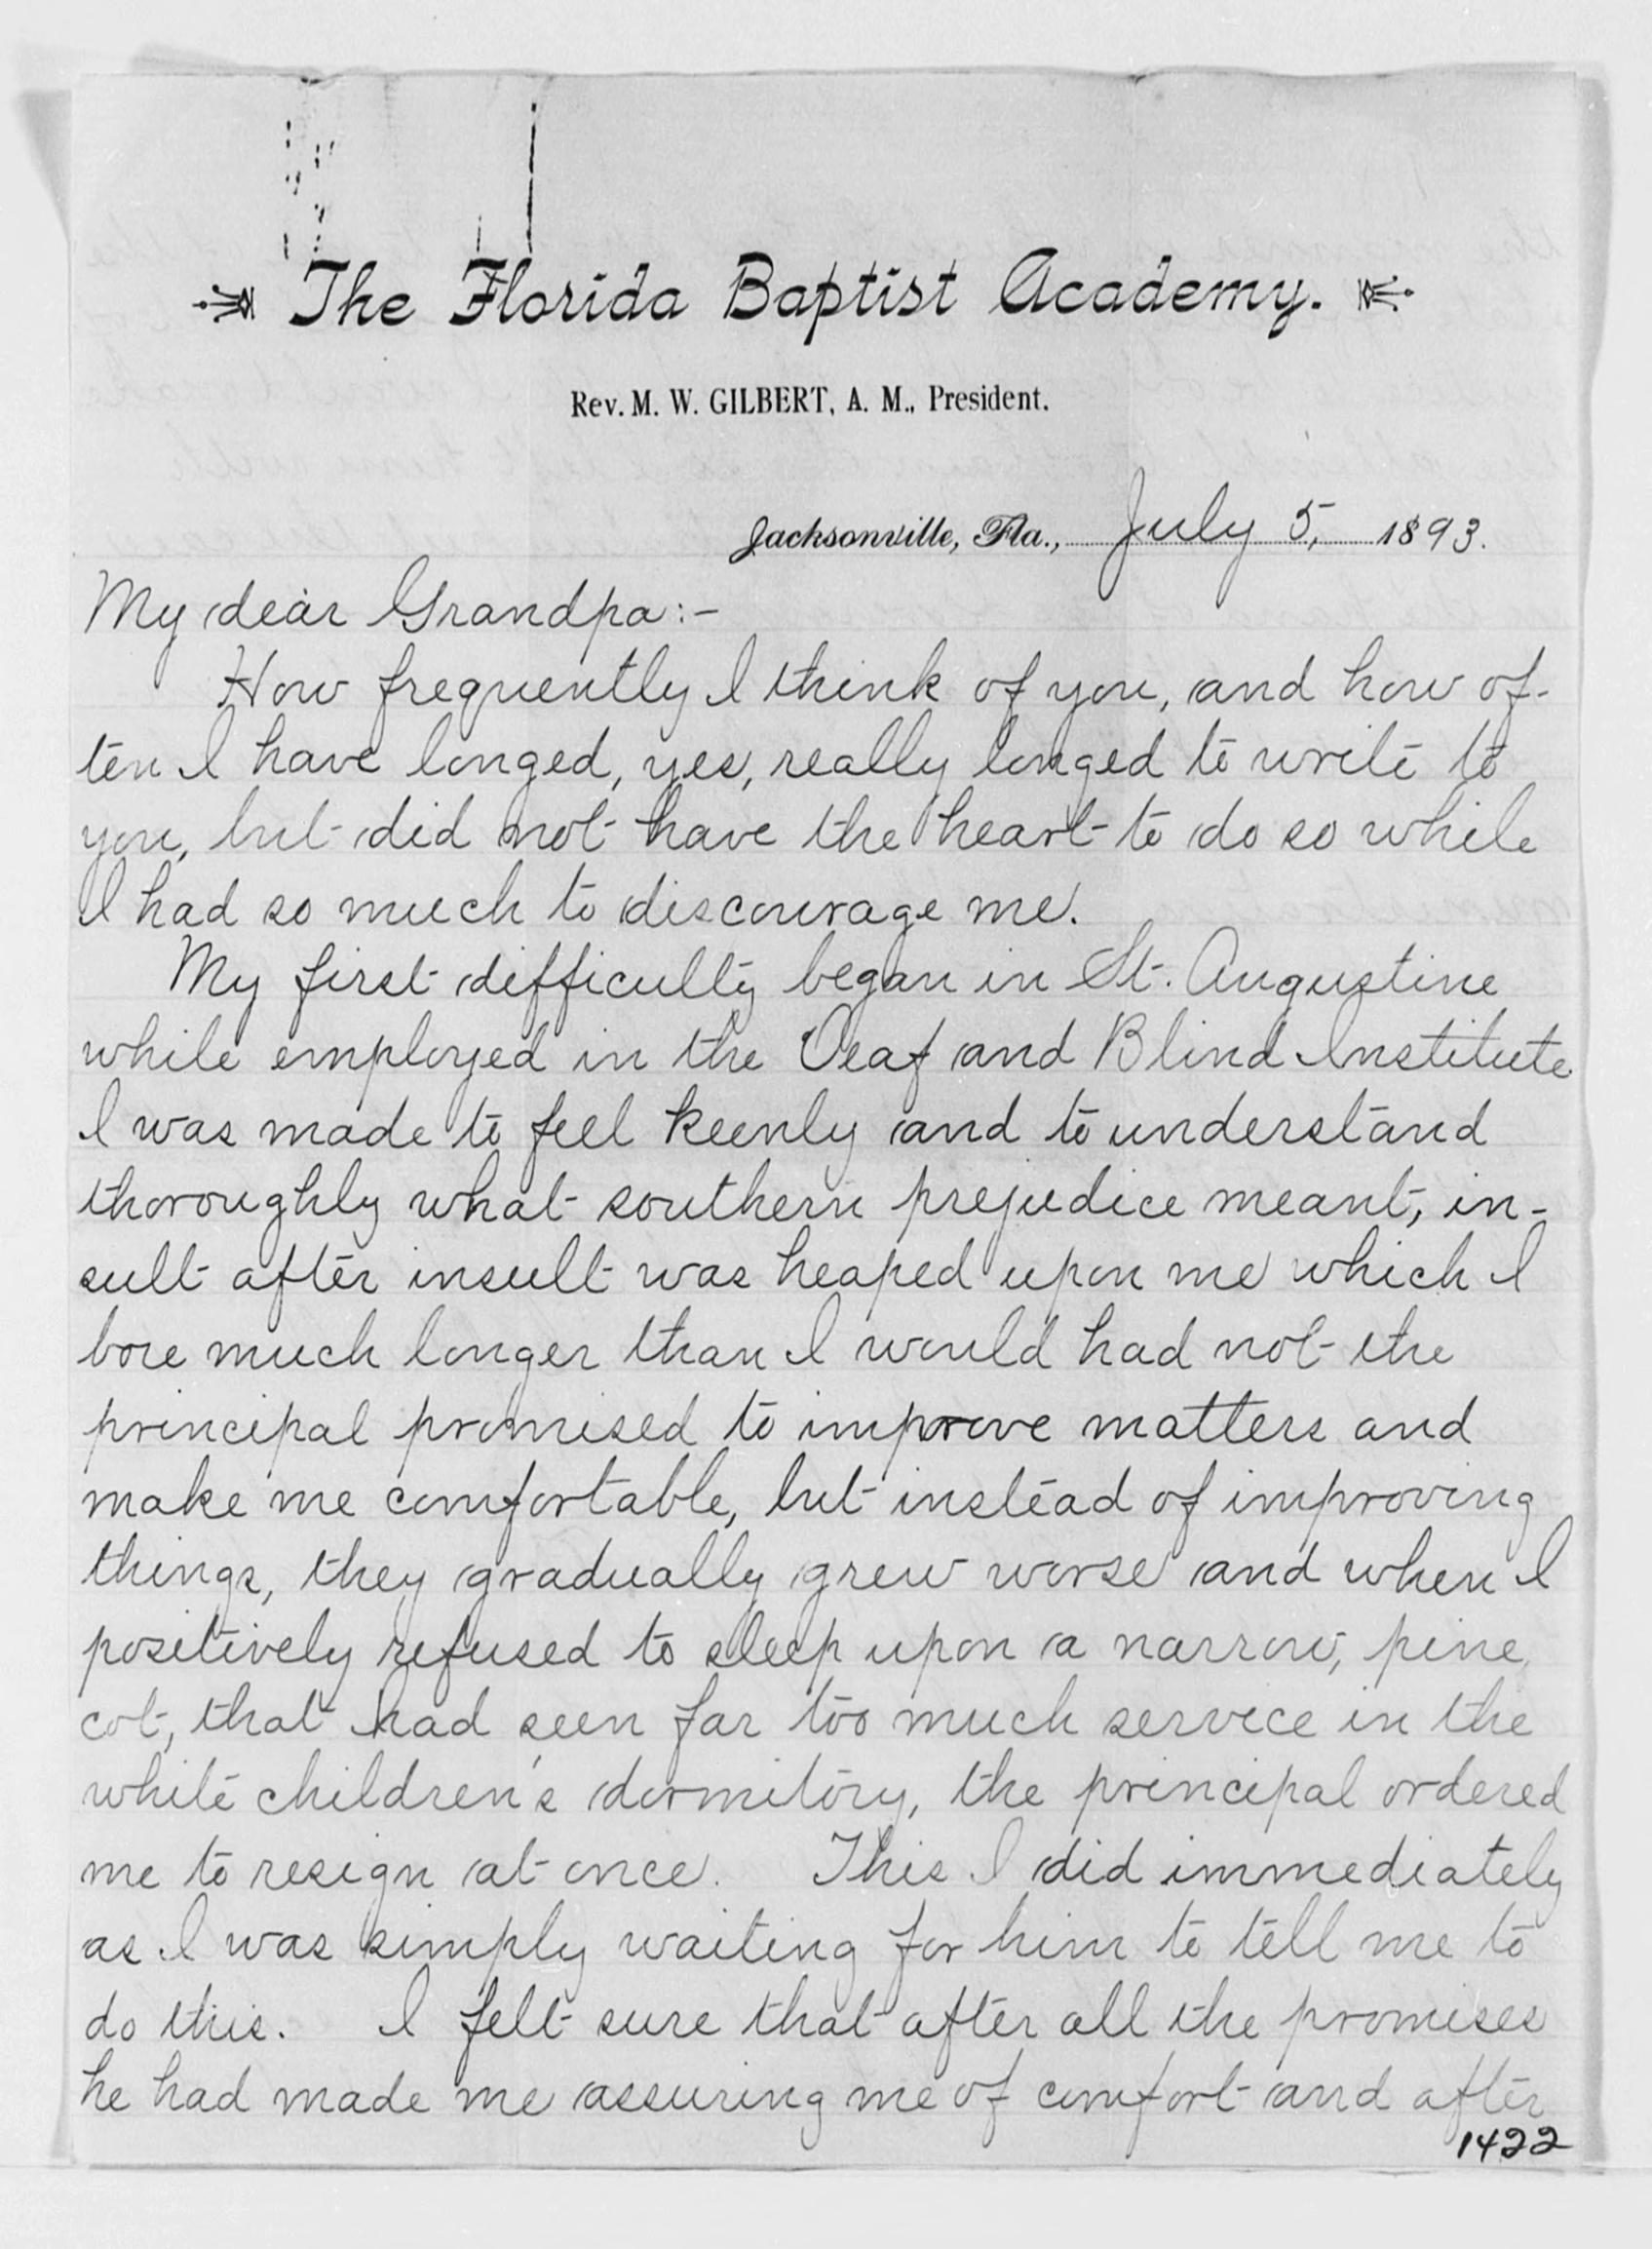 The Florida Baptist Academy.
Rev. M. W. GILBERT, A. M., President.
Jacksonville, Fla., July 5, 1893.
My dear Grandpa:-
How frequently I think of you, and how of-
ten I have longed, yes, really longed to write to
you, but did not have the heart to do so while
I had so much to discourage me.
My first difficulty began in St. Augustine
while employed in the Deaf and Blind Institute
I was made to feel keenly and to understand
thoroughly what southern prejudice meant, in-
sult after insult was heaped upon me which I
bore much longer than I would had not the
principal promised to improve matters and
make me comfortable, but instead of improving
things, they gradually grew worse and when I
positively refused to sleep upon a narrow, pine,
cot, that had seen far too much service in the
white children's dormitory, the principal ordered
me to resign at once. This I did immediately
as I was simply waiting for him to tell me to
do this. I felt sure that after all the promises
he had made me assuring me of comfort and after
1422